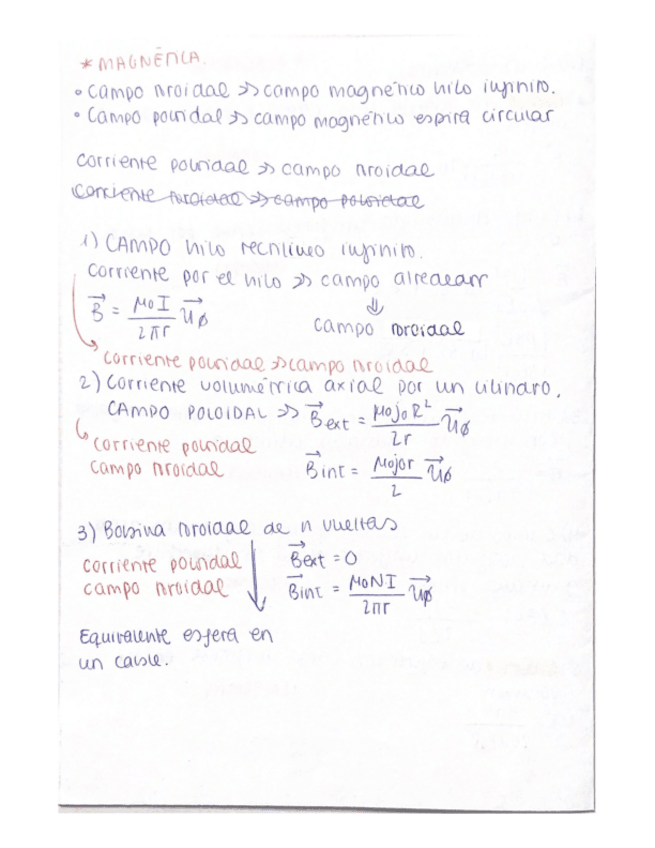 * MAGNÉTICA
• Campo toroidal => campo magnético hilo infinito.
• Campo poloidal => campo magnético espira circular
Corriente poloidal => campo toroidal
Corriente toroidal => campo poloidal
1) CAMPO hilo rectilíneo infinito.
Corriente por el hilo => campo alrededor
B⃗ = μ₀I / 2πr u⃗ø ⇓ campo toroidal
corriente poloidal => campo toroidal
2) Corriente volumétrica axial por un cilindro.
CAMPO POLOIDAL => B⃗ext = μ₀j₀R² / 2r u⃗ø
corriente poloidal
campo toroidal B⃗int = μ₀j₀r / 2 u⃗ø
3) Bobina toroidal de n vueltas
corriente poloidal B⃗ext = 0
campo toroidal B⃗int = μ₀NI / 2πr u⃗ø
Equivalente esfera en
un cable.